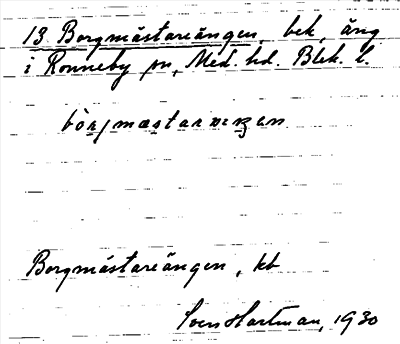 13 Borgmästareängen, bek, äng
i Ronneby sn, Med. hd. Blek. l.
Borgmästareängen, kb
Sven Hartman, 1930